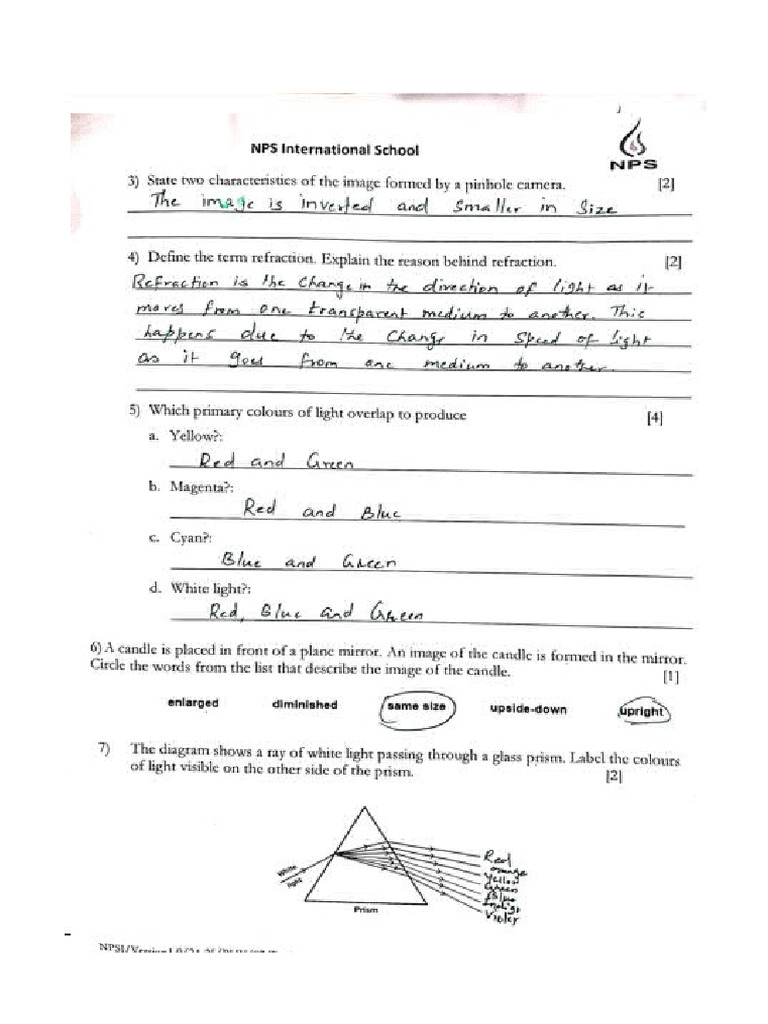 NPS International School
NPS
3) State two characteristics of the image formed by a pinhole camera. [2]
The image is inverted and smaller in size
4) Define the term refraction. Explain the reason behind refraction. [2]
Refraction is the change in the direction of light as it
moves from one transparent medium to another. This
happens due to the change in speed of light
as it goes from one medium to another.
5) Which primary colours of light overlap to produce [4]
a. Yellow?:
Red and Green
b. Magenta?:
Red and Blue
c. Cyan?:
Blue and Green
d. White light?:
Red, Blue and Green
6) A candle is placed in front of a plane mirror. An image of the candle is formed in the mirror.
Circle the words from the list that describe the image of the candle. [1]
enlarged diminished same size upside-down upright
7) The diagram shows a ray of white light passing through a glass prism. Label the colours
of light visible on the other side of the prism. [2]
White
light
Prism
Red
orange
Yellow
Green
Blue
Indigo
Violet